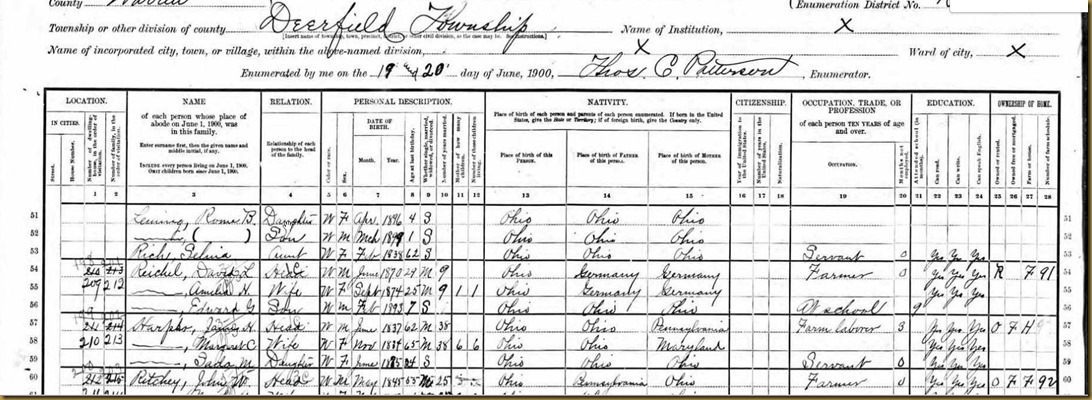 County Warren (Enumeration District No.
Township or other division of county Deerfield Township Name of Institution, X
Name of incorporated city, town, or village, within the above-named division, X Ward of city, X
Enumerated by me on the 19 and 20 day of June, 1900, Thos C. Patterson, Enumerator.
LOCATION. NAME RELATION. PERSONAL DESCRIPTION. NATIVITY. CITIZENSHIP. OCCUPATION, TRADE, OR PROFESSION EDUCATION. OWNERSHIP OF HOME.
IN CITIES. of each person whose place of abode on June 1, 1900, was in this family. Relationship of each person to the head of the family. DATE OF BIRTH. Place of birth of each person and parents of each person enumerated. If born in the United States, give the State or Territory; if of foreign birth, give the Country only. of each person TEN YEARS of age and over.
Enter surname first, then the given name and middle initial, if any.
INCLUDE every person living on June 1, 1900.
OMIT children born since June 1, 1900.
Street. House Number. Number of dwelling house, in the order of visitation. Number of family, in the order of visitation. Color or race. Sex. Month. Year. Age at last birthday. Place of birth of this PERSON. Place of birth of FATHER of this person. Place of birth of MOTHER of this person. Year of immigration to the United States. Number of years in the United States. Naturalization. OCCUPATION. Months not employed. Attended school (in months). Can read. Can write. Can speak English. Owned or rented. Owned free or mortgaged. Farm or house. Number of farm schedule.
1 2 3 4 5 6 7 8 9 10 11 12 13 14 15 16 17 18 19 20 21 22 23 24 25 26 27 28
51 Leming, Roma B. Daughter W F Apr 1896 4 S Ohio Ohio Ohio 51
52 ( ) Son W M Mch 1899 1 S Ohio Ohio Ohio 52
53 Rich, Selina Aunt W F Feb 1838 62 S Ohio Ohio Ohio Servant 0 Yes Yes Yes 53
54 Reichel, David L Head W M June 1870 29 M 9 Ohio Germany Germany Farmer 0 Yes Yes Yes R F 91 54
55 209 212 Amelia H. Wife W F Sept 1874 25 M 9 1 1 Ohio Germany Germany Yes Yes Yes 55
56 Edward G Son W M Feb 1893 7 S Ohio Ohio Ohio At school 9 56
57 Harper, James H. Head W M June 1837 62 M 38 Ohio Ohio Pennsylvania Farm laborer 3 Yes Yes Yes O F H 57
58 210 213 Margaret C Wife W F Nov 1834 65 M 38 6 6 Ohio Ohio Maryland Yes Yes Yes 58
59 Sada M Daughter W F June 1875 24 S Ohio Ohio Ohio Servant 0 Yes Yes Yes 59
60 Ritchey, John W. Head W M May 1845 55 M 25 Ohio Pennsylvania Ohio Farmer 0 Yes Yes Yes O F F 92 60